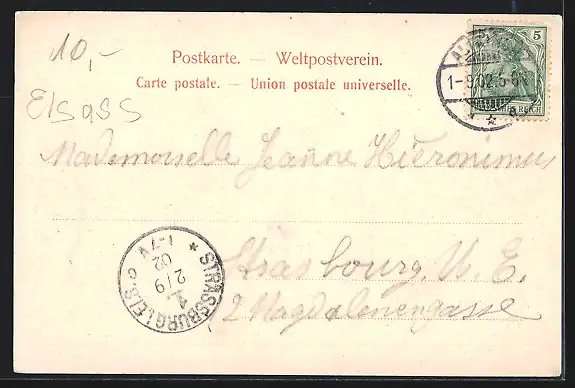 10,-
Elsass
Postkarte. — Weltpostverein.
Carte postale. — Union postale universelle.
5
1-9.02.5-6N
REICH
Mademoiselle Jeanne Hiéronimus
Strasbourg. U. E.
2 Magdalenengasse
STRASSBURG (ELS.)
1
2/9
02
1-7V